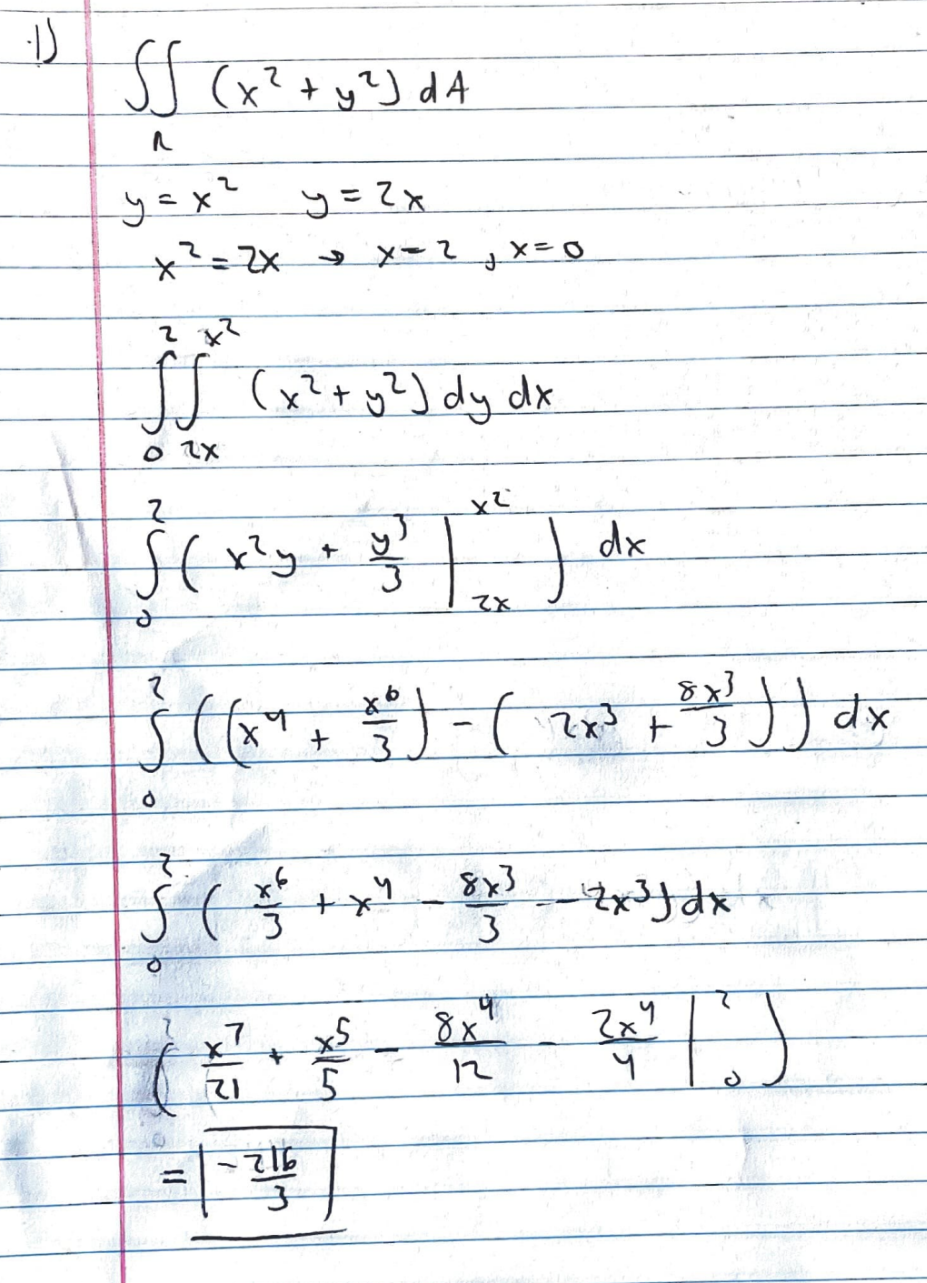 1)
∫∫_R (x² + y²) dA
y = x²   y = 2x
x² = 2x → x = 2, x = 0
∫_0^2 ∫_{2x}^{x²} (x² + y²) dy dx
∫_0^2 ( x²y + y³/3 |_{2x}^{x²} ) dx
∫_0^2 ((x⁴ + x⁶/3) - (2x³ + 8x³/3)) dx
∫_0^2 ( x⁶/3 + x⁴ - 8x³/3 - 2x³) dx
( x⁷/21 + x⁵/5 - 8x⁴/12 - 2x⁴/4 |_0^2 )
= -216/3